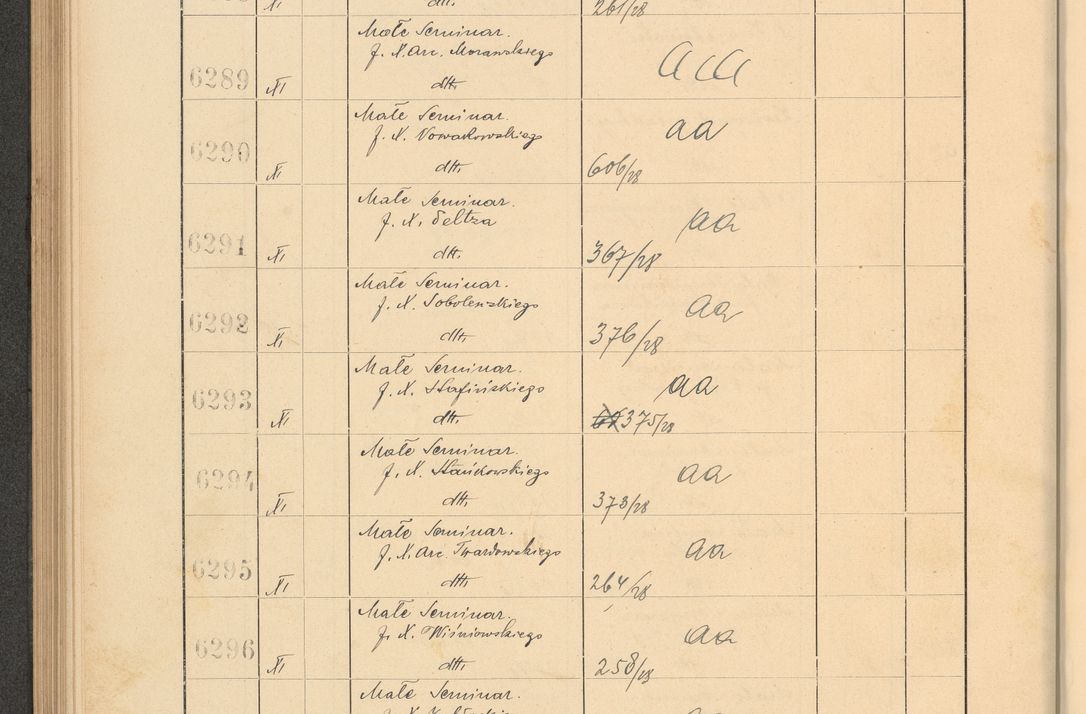 261/28
Małe Seminar.
J. X. Arc. Morawskiego
6289 XI dtt.
Małe Seminar. aa
J. X. Nowakowskiego
6290 XI dtt. 606/28
Małe Seminar. aa
J. X. Peltza
6291 XI dtt. 367/28
Małe Seminar. aa
J. X. Sobolewskiego
6292 XI dtt. 376/28
Małe Seminar. aa
J. X. Stafińskiego
6293 XI dtt. 375/28
Małe Seminar. aa
J. X. Stańkowskiego
6294 XI dtt. 373/28
Małe Seminar. aa
J. X. Arc. Twardowskiego
6295 XI dtt. 264/28
Małe Seminar. aa
J. X. Wiśniowskiego
6296 XI dtt. 258/28
Małe Seminar.